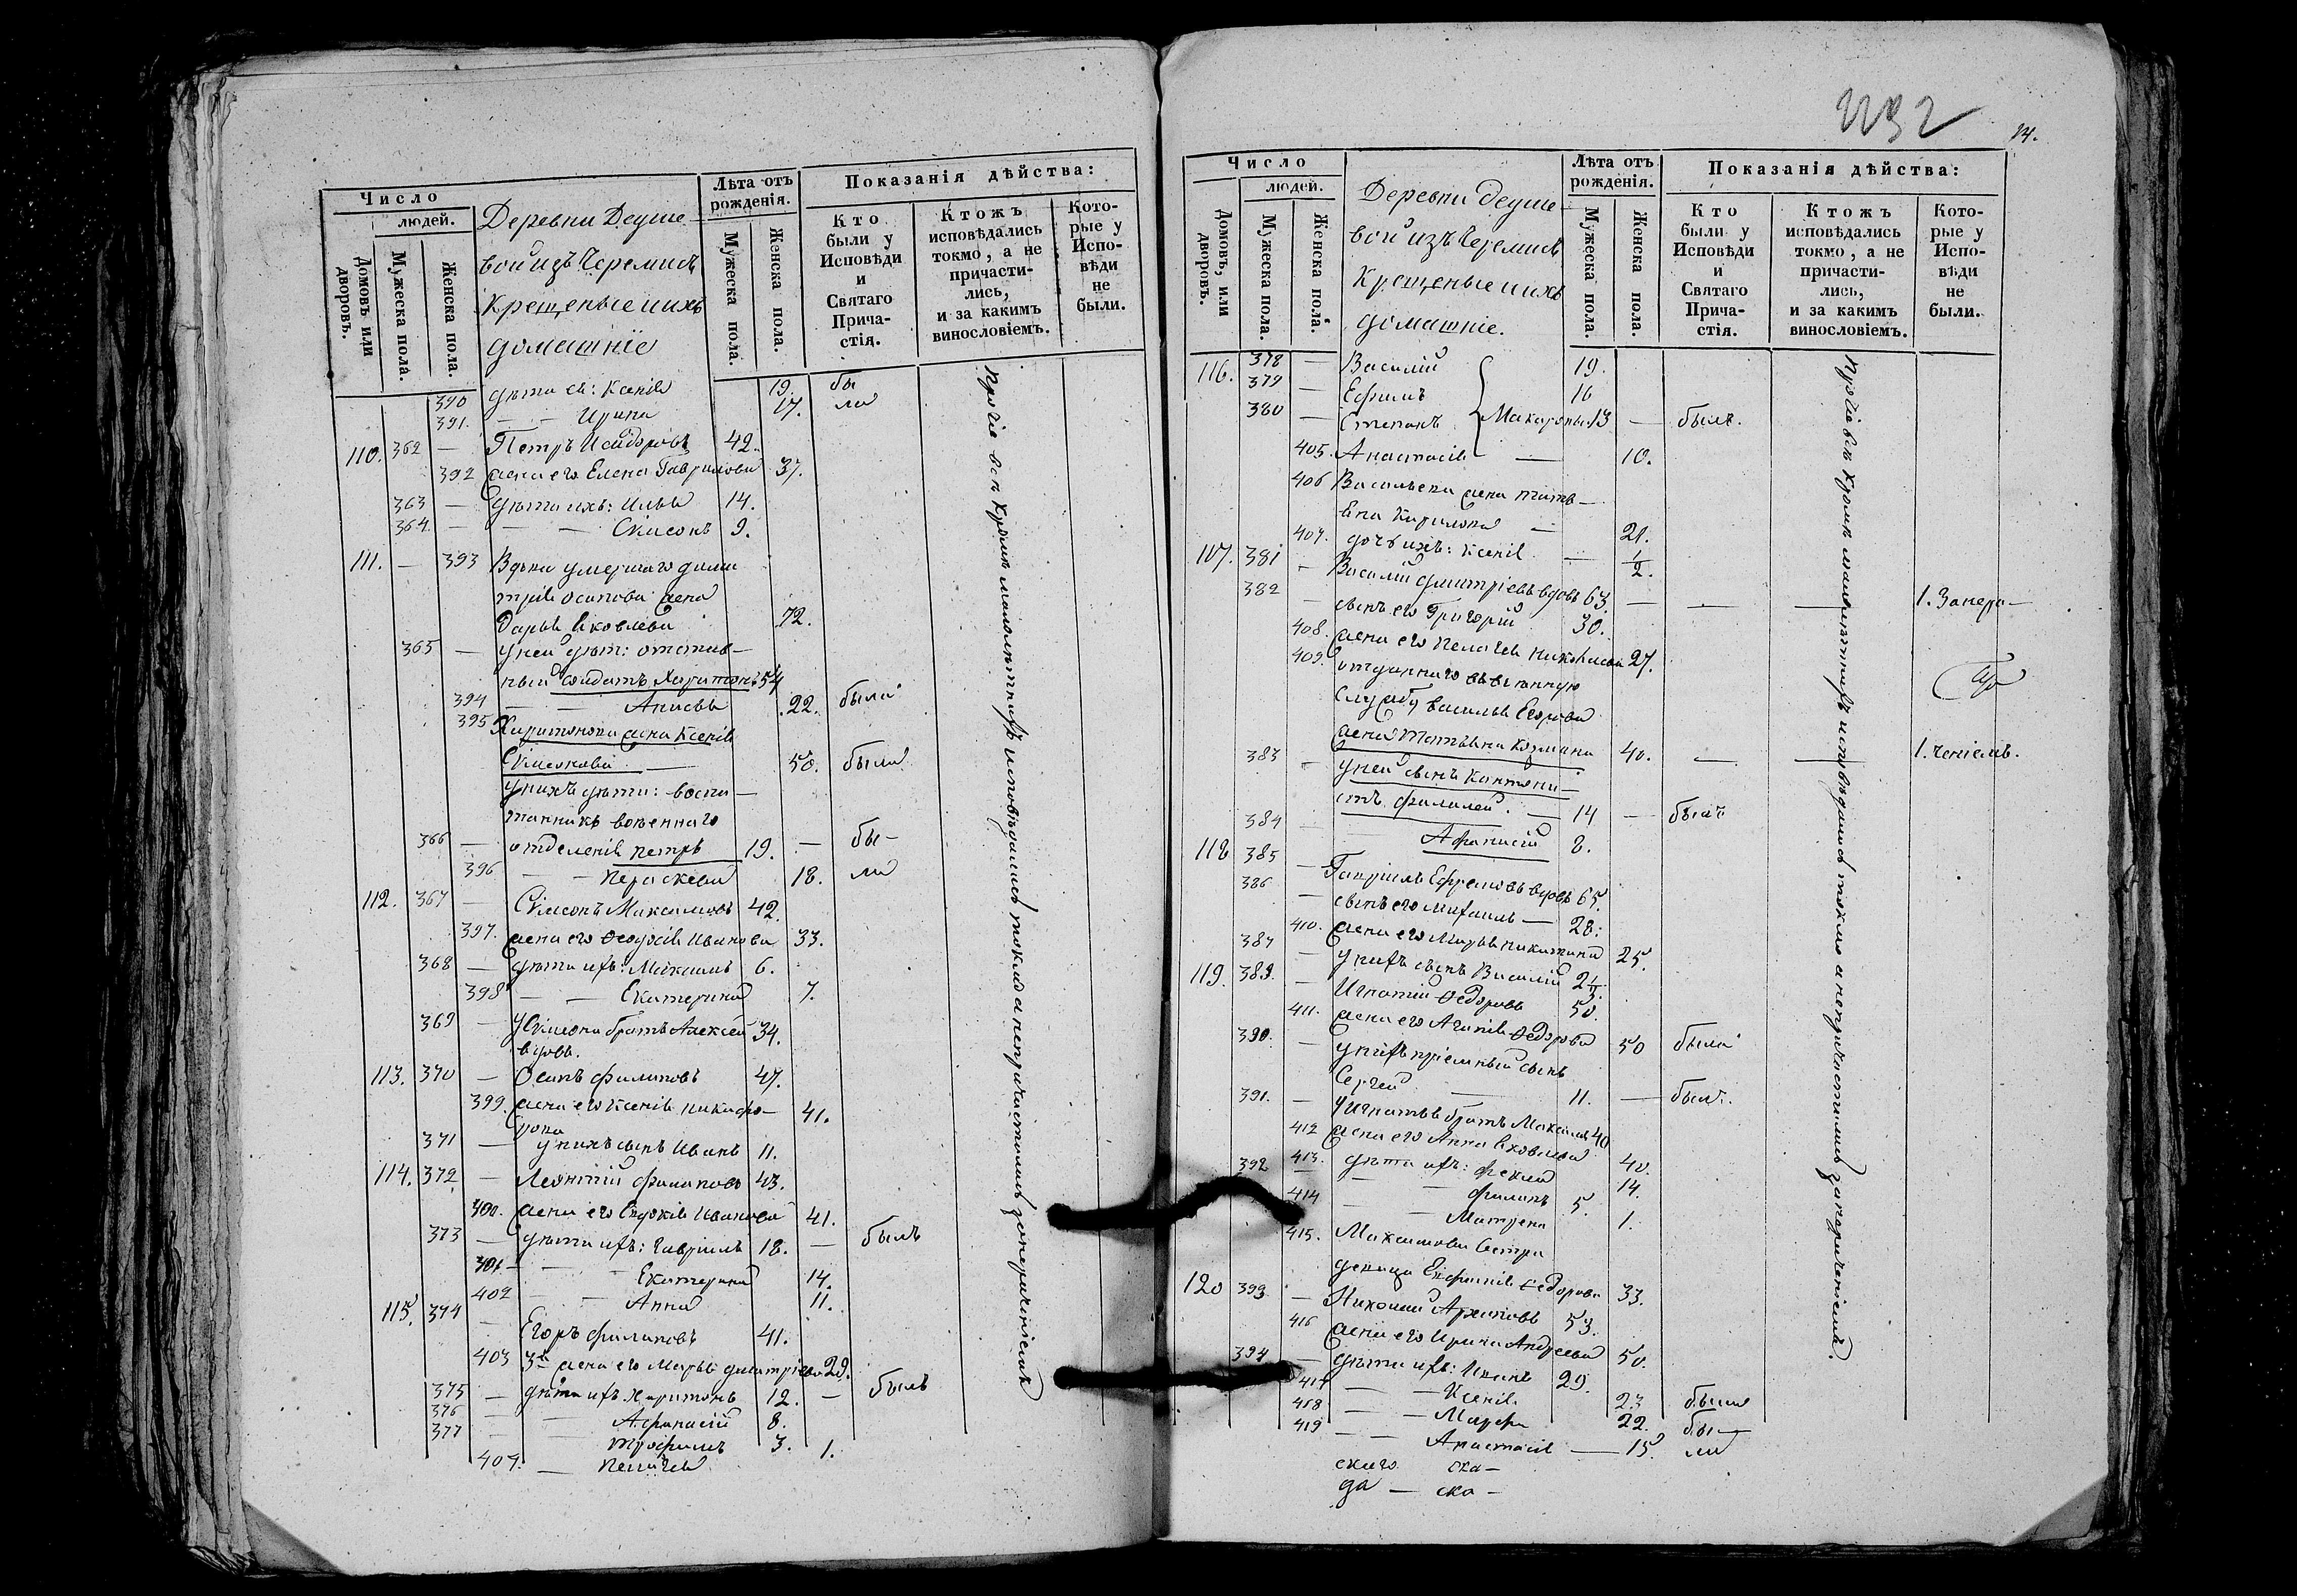 Число
людей.
Домовъ или дворовъ.
Мужеска пола.
Женска пола.
Деревни Деуше-
вой изъ Черемисъ
крещеные и ихъ
домашніе
Лѣта отъ рожденія.
Мужеска пола.
Женска пола.
Показанія дѣйства:
Кто были у Исповѣди и Святаго Прича-стія.
Ктожъ исповѣдались токмо, а не причасти-лись, и за какимъ винословіемъ.
Кото-рые у Испо-вѣди не были.
390 дѣти ея: Ксенія 19. бы
391. — — Ирина 17. ла
110. 362 — Петръ Исидоровъ 42.
392 жена его Елена Гаврилова 37.
363 — дѣти ихъ: Илья 14.
364. — — Симеонъ 9.
111. — 393 Вдова умершаго Дими
трія Осипова жена
Дарья Яковлева 72.
365 — у ней дѣт: отстав-
ный солдатъ Харитонъ 54
394 — — Анисья 22. была
395 Харитонова жена Ксенія
Симеонова — 50. была
у нихъ дѣти: воспи-
танникъ военнаго
366 — отделенія Петръ 19. — бы-
396 — — Параскева 18. ли
112. 367 — Симеонъ Максимовъ 42.
397. жена его Феодосія Иванова 33.
368 — дѣти ихъ: Максимъ 6.
398 — — Екатерина 7.
369 — у Симеона братъ Алексей 34.
вдовъ.
113. 370 — Осипъ Филиповъ 47.
399. жена его Ксенія Никифо-
рова 41.
371 — у нихъ сынъ Иванъ 11.
114. 372 — Леонтій Филиповъ 43.
400. жена его Евдокія Иванова 41.
373 — дѣти ихъ: Гавріилъ 18. — былъ
401 — — Екатерина 14.
402 — — Анна 11.
115. 374 — Егоръ Филиповъ 41.
403 3я жена его Марья Дмитріева 29.
375 — дѣти ихъ Харитонъ 12. — былъ
376 — — Афанасій 8.
377 — — Трофимъ 3.
404. — Пелагея 1.
Прочіе всѣ кромѣ малолѣтнихъ исповѣдались токмо а непричастились за нераченіемъ
14.
Число
людей.
Домовъ, или дворовъ.
Мужеска пола.
Женска пола.
Деревни Деуше-
вой изъ Черемисъ
крещеные и ихъ
домашніе.
Лѣта отъ рожденія.
Мужеска пола.
Женска пола.
Показанія дѣйства:
Кто были у Исповѣди и Святаго Прича-стія.
Ктожъ исповѣдались токмо, а не причасти-лись, и за какимъ винословіемъ.
Кото-рые у Испо-вѣди не были.
116. 378 — Василій 19.
379 — Ефимъ 16
380 — Степанъ Макаровы 13 — былъ.
405. Анастасія — 10.
406 Васильева жена Татья-
на Кирилова — 21.
407. дочь ихъ: Ксенія — 1/2.
107. 381 — Василій Дмитріевъ вдовъ 63. — — — 1. Занера-
382 — сынъ его Григорій 30.
408. жена его Пелагея Николаева 27.
409. отданнаго въ военную
службу Василья Егорова
жена Татьяна Козмина 40. — — 1. ченіемъ.
383 — у ней сынъ Кантони-
стъ Филимонъ. — 14 — былъ
384 — — Афанасій 8.
118 385 — Гавріилъ Ефремовъ вдовъ 65.
386 — сынъ его Михаилъ — 28.
410. жена его Марья Никитина 25.
387 — у нихъ сынъ Василій 2 1/2.
119. 389. — Игнатій Федоровъ 50.
411. жена его Агапія Федорова 50 была
390. — у нихъ пріемный сынъ
Сергей — 11. — былъ.
391. — у Игнатья братъ Максимъ 40
412 жена его Анна Яковлева 40.
413. — дѣти ихъ: Фекла 14.
392 — — Филипъ 5.
414 — — Матрена 1.
415. Максимова сестра
девица Евфимія Федорова 33.
120 393 — Николай Архиповъ 53.
416 жена его Ирина Андреева 50.
394 — дѣти ихъ: Иванъ 29.
417 — — Ксенія 23 была
418 — — Марфа 22. бы-
419 — — Анастасія — 15. ли
Прочіе всѣ кромѣ малолѣтнихъ исповѣдались токмо а непричастились за нераченіемъ.
скаго ска-
да — ска-